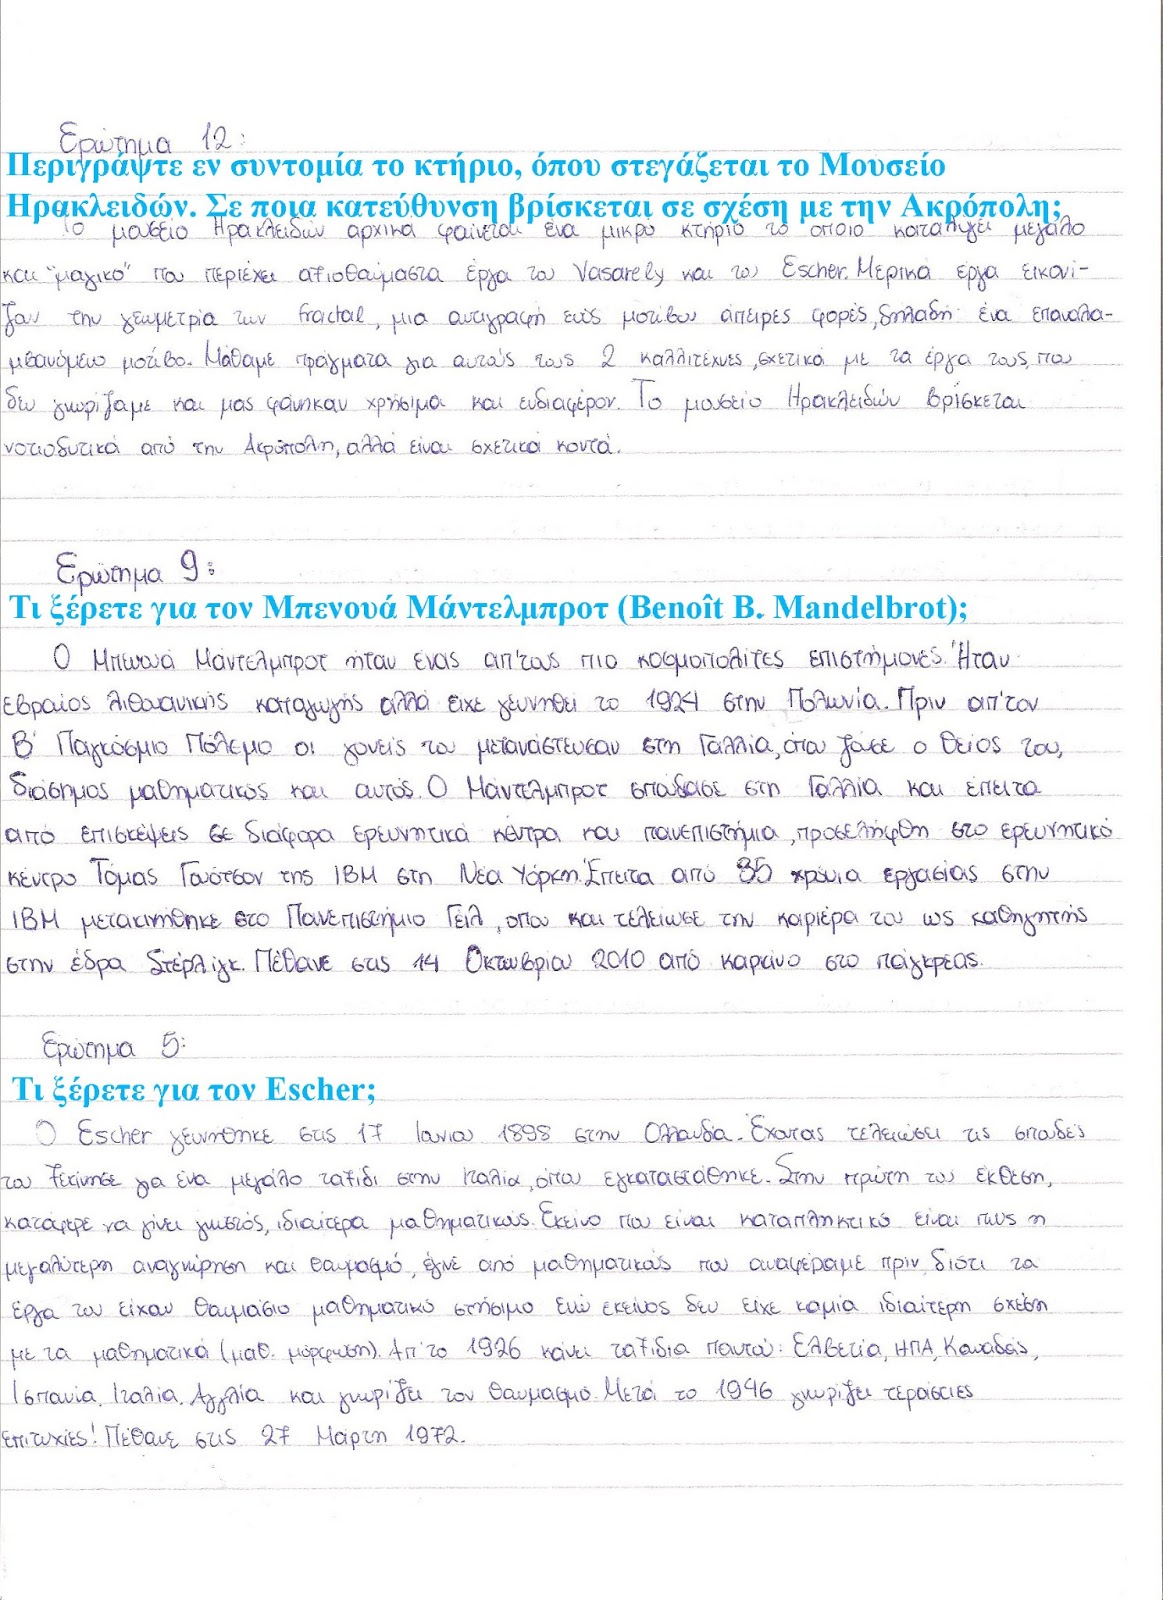 Ερώτημα 12:
Περιγράψτε εν συντομία το κτήριο, όπου στεγάζεται το Μουσείο
Ηρακλειδών. Σε ποια κατεύθυνση βρίσκεται σε σχέση με την Ακρόπολη;
Το μουσείο Ηρακλειδών αρχικά φαίνεται ένα μικρό κτήριο το οποίο καταλήγει μεγάλο
και "μαγικό" που περιέχει αξιοθαύμαστα έργα του Vasarely και του Escher. Μερικά έργα εικονί-
ζαν την γεωμετρία των fractal, μια αντιγραφή ενός μοτίβου άπειρες φορές, δηλαδή ένα επαναλα-
μβανόμενο μοτίβο. Μάθαμε πράγματα για αυτούς τους 2 καλλιτέχνες, σχετικά με τα έργα τους, που
δεν γνωρίζαμε και μας φάνηκαν χρήσιμα και ενδιαφέρον. Το μουσείο Ηρακλειδών βρίσκεται
νοτιοδυτικά από την Ακρόπολη, αλλά είναι σχετικά κοντά.
Ερώτημα 9:
Τι ξέρετε για τον Μπενουά Μάντελμπροτ (Benoît B. Mandelbrot);
Ο Μπενουά Μάντελμπροτ ήταν ένας απ'τους πιο κοσμοπολίτες επιστήμονες. Ήταν
εβραίος λιθουανικής καταγωγής αλλά είχε γεννηθεί το 1924 στην Πολωνία. Πριν απ'τον
Β' Παγκόσμιο Πόλεμο οι γονείς του μετανάστευσαν στη Γαλλία, όπου ζούσε ο θείος του,
διάσημος μαθηματικός και αυτός. Ο Μάντελμπροτ σπούδασε στη Γαλλία και έπειτα
από επισκέψεις σε διάφορα ερευνητικά κέντρα και πανεπιστήμια, προσελήφθη στο ερευνητικό
κέντρο Τόμας Γουότσον της ΙΒΜ στη Νέα Υόρκη. Έπειτα από 35 χρόνια εργασίας στην
ΙΒΜ μετακινήθηκε στο Πανεπιστήμιο Γέιλ, όπου και τέλειωσε την καριέρα του ως καθηγητής
στην έδρα Στέρλιγκ. Πέθανε στις 14 Οκτωβρίου 2010 από καρκίνο στο πάγκρεας.
Ερώτημα 5:
Τι ξέρετε για τον Escher;
Ο Escher γεννήθηκε στις 17 Ιουνίου 1898 στην Ολλανδία. Έχοντας τελειώσει τις σπουδές
του ξεκίνησε για ένα μεγάλο ταξίδι στην Ιταλία, όπου εγκαταστάθηκε. Στην πρώτη του έκθεση,
κατάφερε να γίνει γνωστός, ιδιαίτερα μαθηματικούς. Εκείνο που είναι καταπληκτικό είναι πως η
μεγαλύτερη αναγνώρηση και θαυμασμό, έγινε από μαθηματικούς που αναφέραμε πριν διότι τα
έργα του είχαν θαυμάσιο μαθηματικό στήσιμο ενώ εκείνος δεν είχε καμία ιδιαίτερη σχέση
με τα μαθηματικά (μαθ. μόρφωση). Απ'το 1926 κάνει ταξίδια παντού: Ελβετία, ΗΠΑ, Καναδάς,
Ισπανία, Ιταλία, Αγγλία και γνωρίζει τον θαυμασμό. Μετά το 1946 γνωρίζει τεράστιες
επιτυχίες! Πέθανε στις 27 Μάρτη 1972.